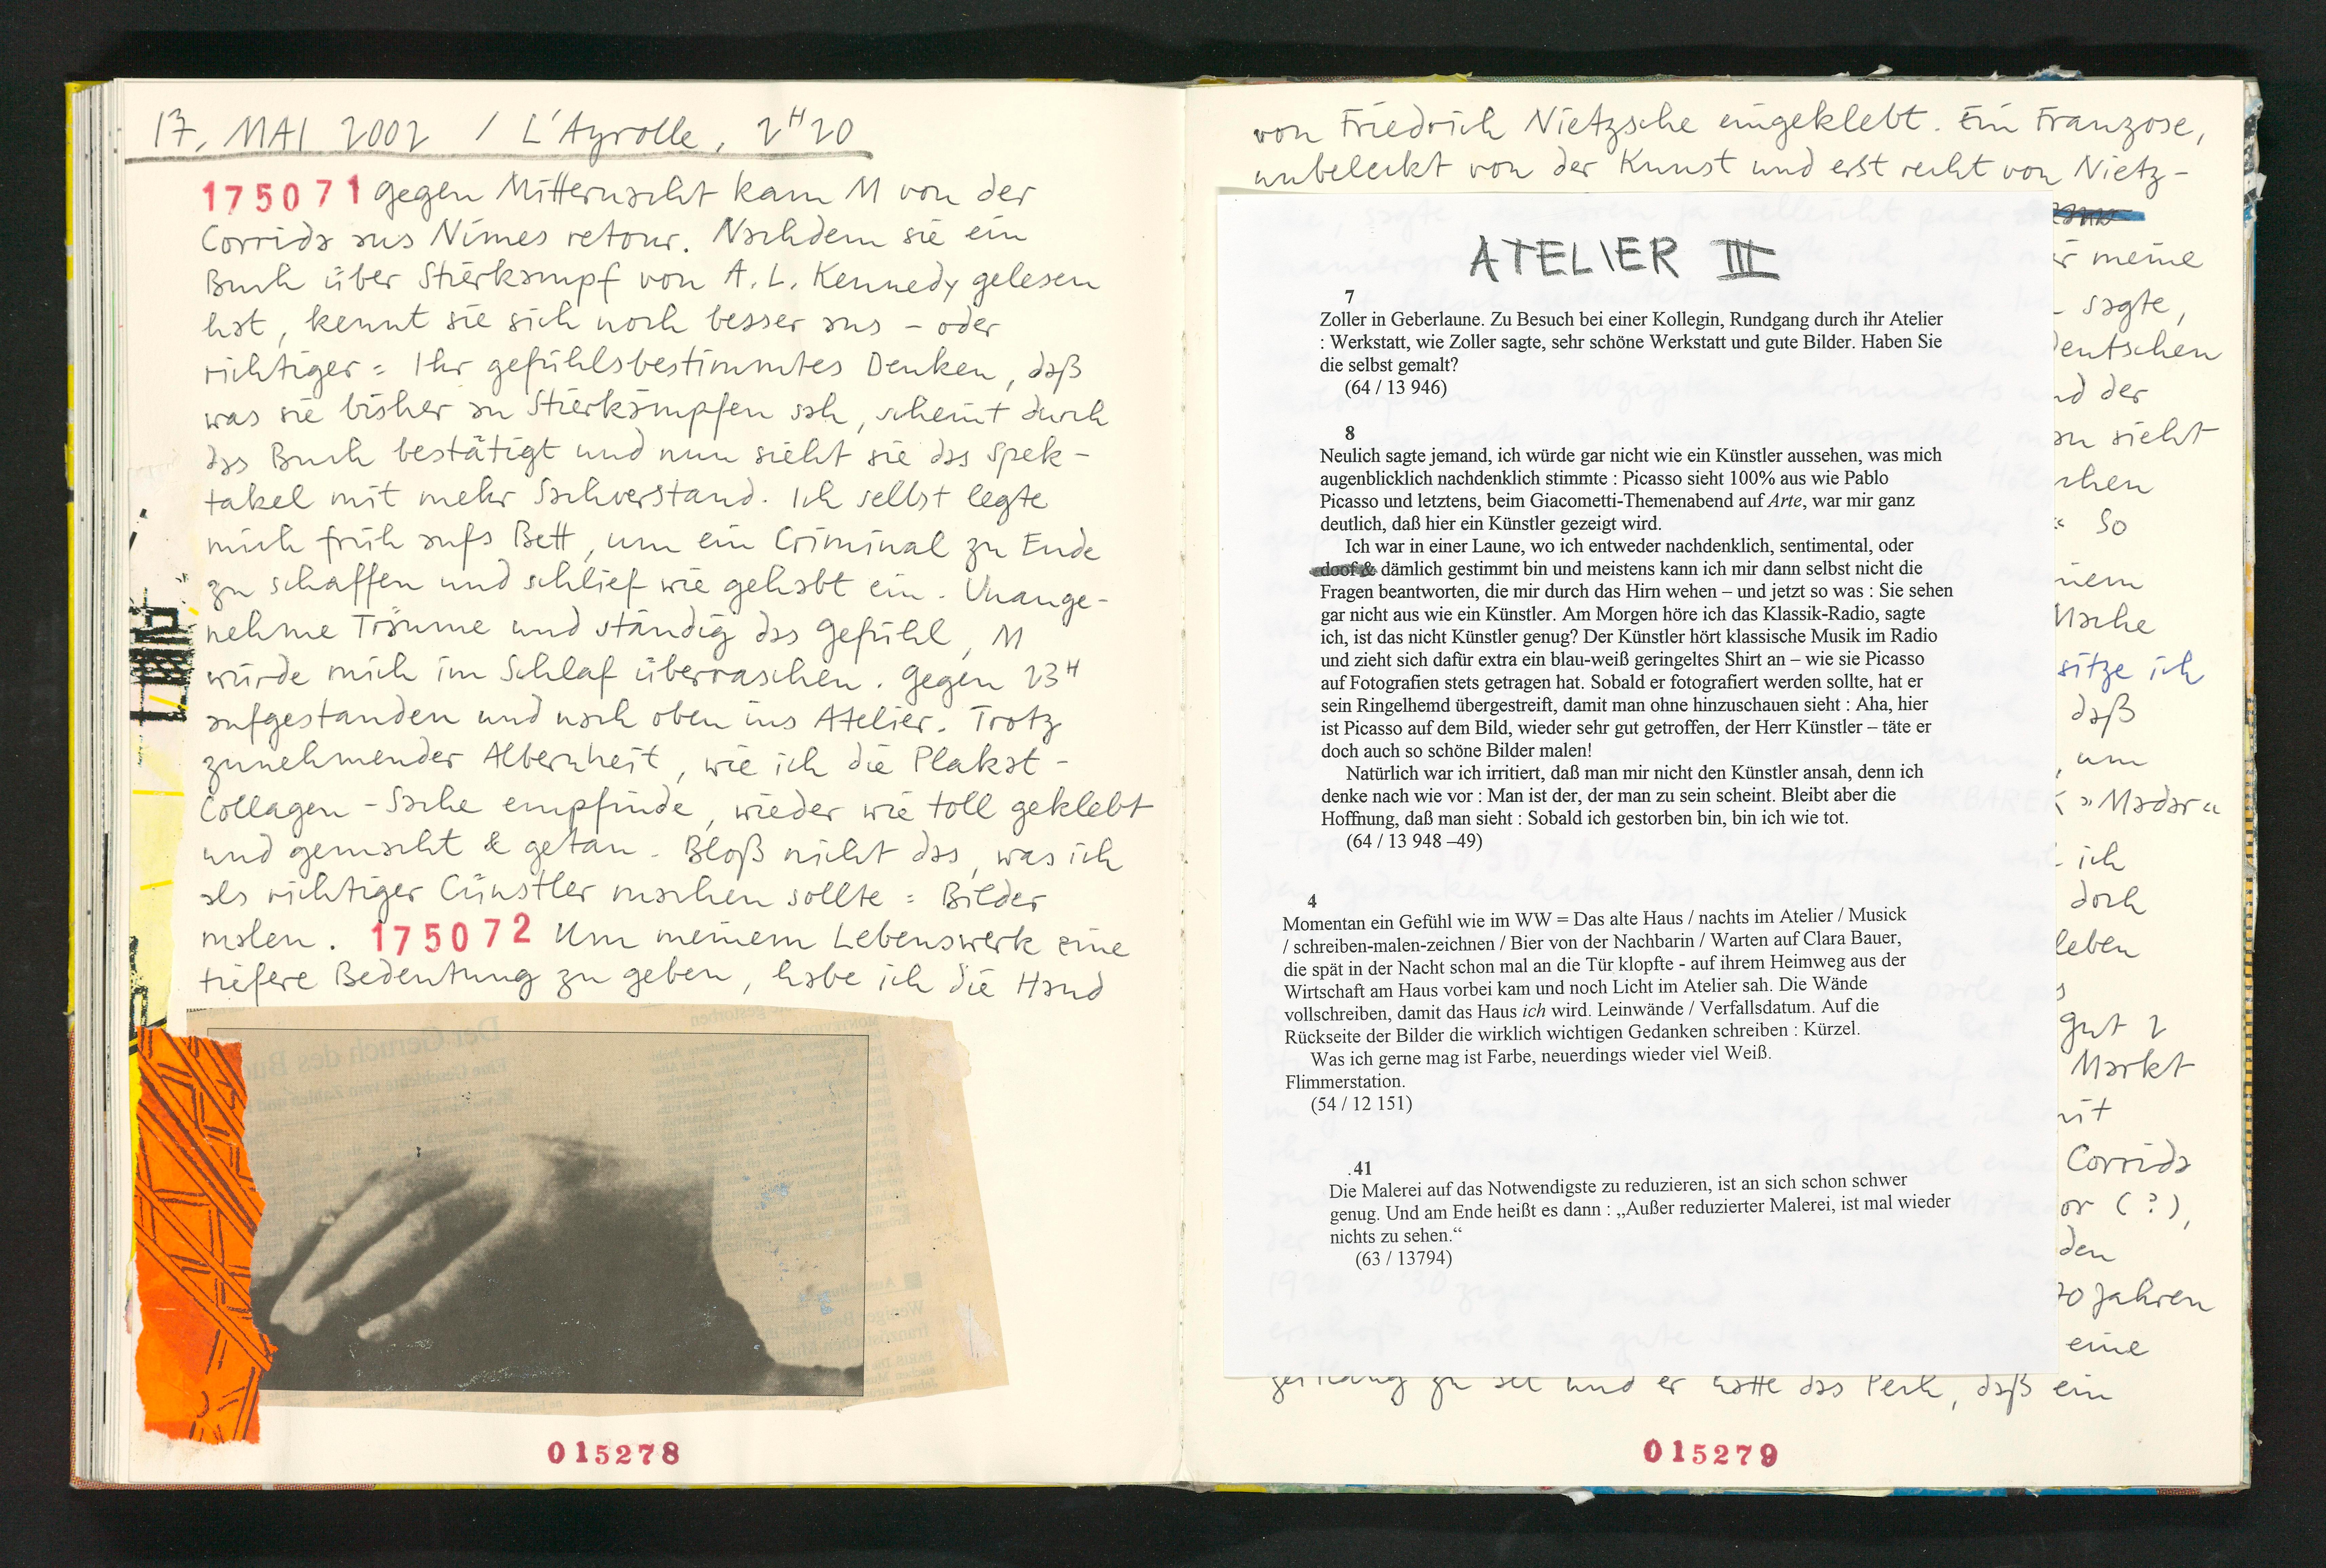 17. MAI 2002 / L'Ayrolle, 2H20
175071 Gegen Mitternacht kam M von der
Corrida aus Nimes retour. Nachdem sie ein
Buch über Stierkampf von A. L. Kennedy gelesen
hat, kennt sie sich noch besser aus – oder
richtiger = Ihr gefühlsbestimmtes Denken, daß
was sie bisher an Stierkämpfen sah, scheint durch
das Buch bestätigt und nun sieht sie das Spek-
takel mit mehr Sachverstand. Ich selbst legte
mich früh aufs Bett, um ein Criminal zu Ende
zu schaffen und schlief wie gehabt ein. Unange-
nehme Träume und ständig das Gefühl, M
würde mich im Schlaf überraschen. Gegen 23H
aufgestanden und nach oben ins Atelier. Trotz
zunehmender Albernheit, wie ich die Plakat-
Collagen-Sache empfinde, wieder wie toll geklebt
und gemacht & getan. Bloß nicht das, was ich
als richtiger Cünstler machen sollte = Bilder
malen. 175072 Um meinem Lebenswerk eine
tiefere Bedeutung zu geben, habe ich die Hand
Der Geruch des Bu
015278
von Friedrich Nietzsche eingeklebt. Ein Franzose,
unbeleckt von der Kunst und erst recht von Nietz-
ATELIER III
7
Zoller in Geberlaune. Zu Besuch bei einer Kollegin, Rundgang durch ihr Atelier
: Werkstatt, wie Zoller sagte, sehr schöne Werkstatt und gute Bilder. Haben Sie
die selbst gemalt?
(64 / 13 946)
8
Neulich sagte jemand, ich würde gar nicht wie ein Künstler aussehen, was mich
augenblicklich nachdenklich stimmte : Picasso sieht 100% aus wie Pablo
Picasso und letztens, beim Giacometti-Themenabend auf Arte, war mir ganz
deutlich, daß hier ein Künstler gezeigt wird.
Ich war in einer Laune, wo ich entweder nachdenklich, sentimental, oder
doof & dämlich gestimmt bin und meistens kann ich mir dann selbst nicht die
Fragen beantworten, die mir durch das Hirn wehen – und jetzt so was : Sie sehen
gar nicht aus wie ein Künstler. Am Morgen höre ich das Klassik-Radio, sagte
ich, ist das nicht Künstler genug? Der Künstler hört klassische Musik im Radio
und zieht sich dafür extra ein blau-weiß geringeltes Shirt an – wie sie Picasso
auf Fotografien stets getragen hat. Sobald er fotografiert werden sollte, hat er
sein Ringelhemd übergestreift, damit man ohne hinzuschauen sieht : Aha, hier
ist Picasso auf dem Bild, wieder sehr gut getroffen, der Herr Künstler – täte er
doch auch so schöne Bilder malen!
Natürlich war ich irritiert, daß man mir nicht den Künstler ansah, denn ich
denke nach wie vor : Man ist der, der man zu sein scheint. Bleibt aber die
Hoffnung, daß man sieht : Sobald ich gestorben bin, bin ich wie tot.
(64 / 13 948 –49)
4
Momentan ein Gefühl wie im WW = Das alte Haus / nachts im Atelier / Musick
/ schreiben-malen-zeichnen / Bier von der Nachbarin / Warten auf Clara Bauer,
die spät in der Nacht schon mal an die Tür klopfte - auf ihrem Heimweg aus der
Wirtschaft am Haus vorbei kam und noch Licht im Atelier sah. Die Wände
vollschreiben, damit das Haus ich wird. Leinwände / Verfallsdatum. Auf die
Rückseite der Bilder die wirklich wichtigen Gedanken schreiben : Kürzel.
Was ich gerne mag ist Farbe, neuerdings wieder viel Weiß.
Flimmerstation.
(54 / 12 151)
.41
Die Malerei auf das Notwendigste zu reduzieren, ist an sich schon schwer
genug. Und am Ende heißt es dann : „Außer reduzierter Malerei, ist mal wieder
nichts zu sehen.“
(63 / 13794)
meine
sagte,
eutschen
der
sieht
So
sitze ich
daß
um
»Madar«
ich
doch
leben
gut 2
Markt
Corrida
(?),
den
70 Jahren
eine
und er hatte das Pech, daß ein
015279